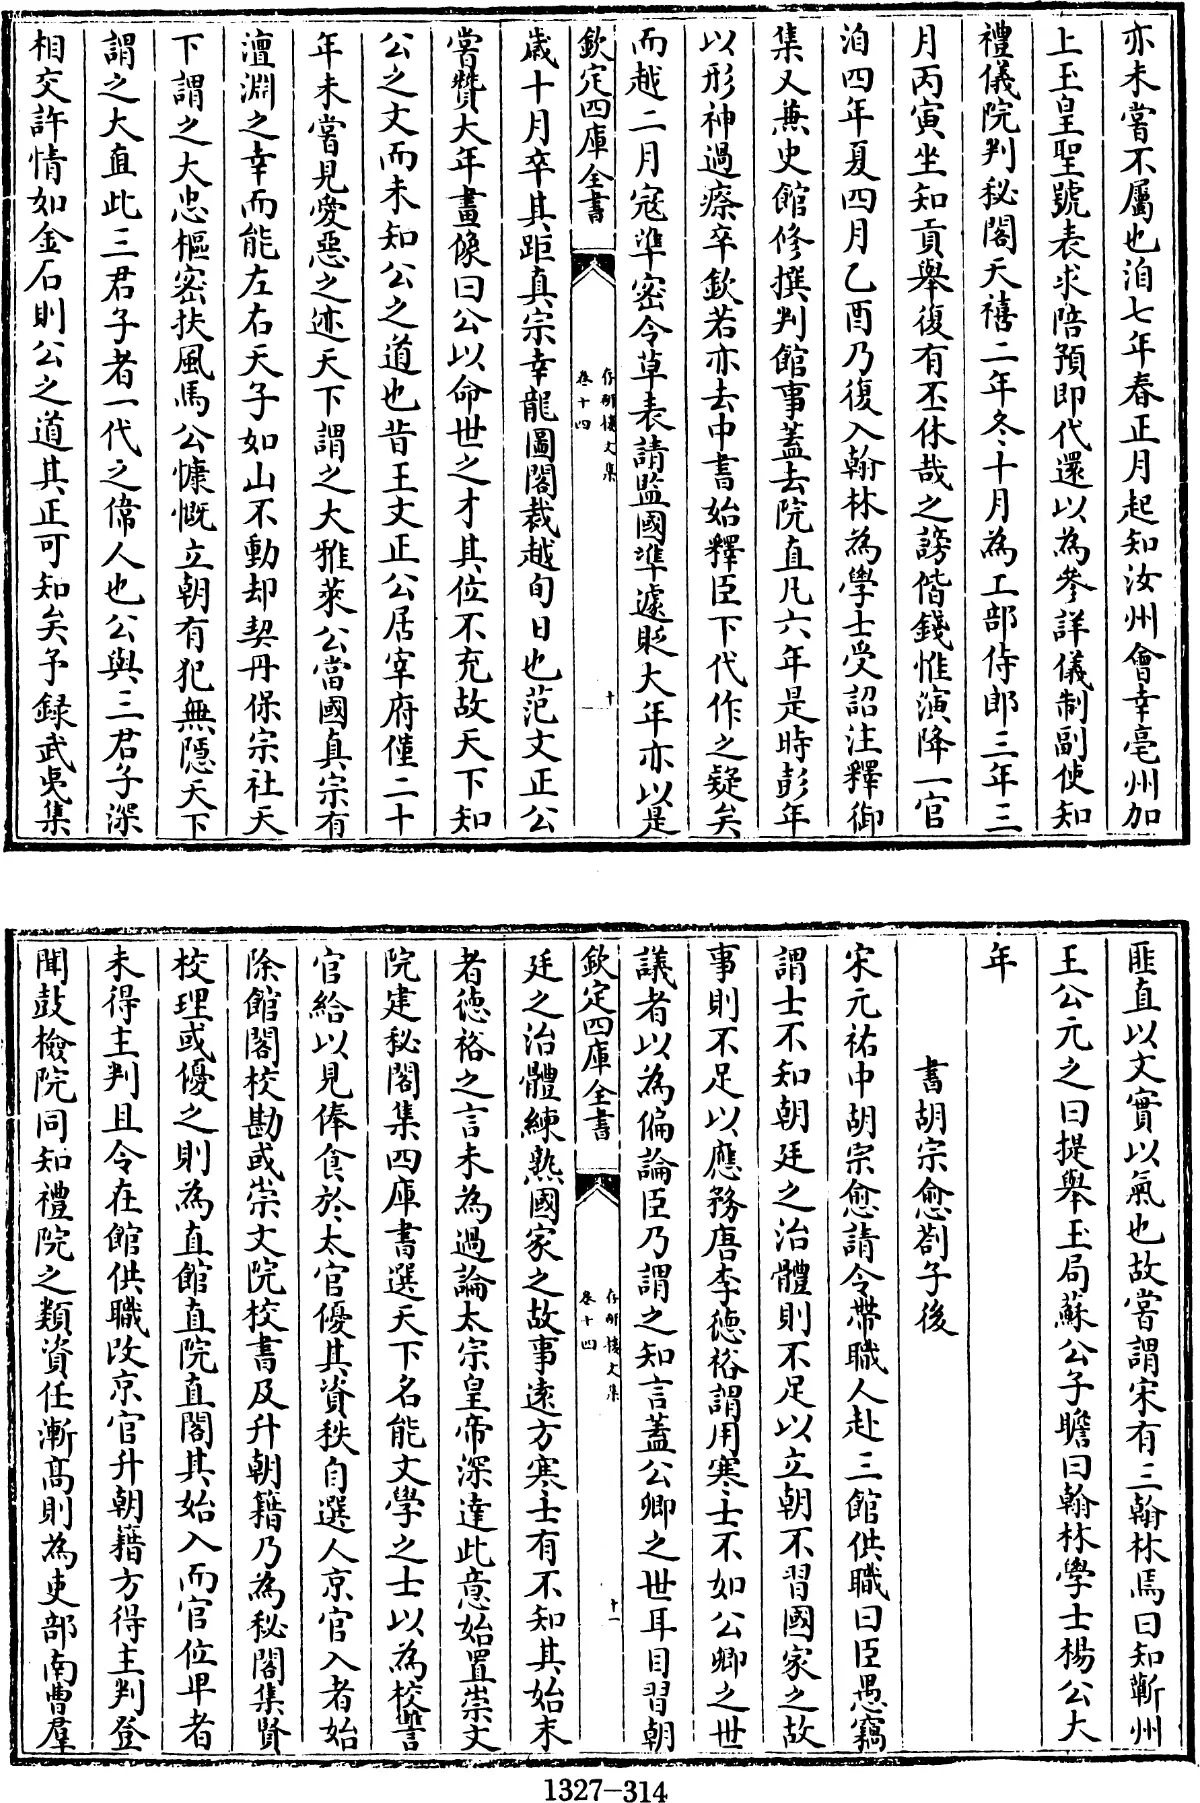 亦未嘗不屬也洎七年春正月起知汝州會幸亳州加
上玉皇聖號表求陪預即代還以為參詳儀制副使知
禮儀院判秘閣天禧二年冬十月為工部侍郎三年三
月丙寅坐知貢舉復有丕休哉之謗偕錢惟演降一官
洎四年夏四月乙酉乃復入翰林為學士受詔注釋御
集又兼史館修撰判館事蓋去院直凡六年是時彭年
以形神過瘵卒欽若亦去中書始釋臣下代作之疑矣
而越二月寇準密令草表請監國準遽貶大年亦以是
欽定四庫全書
存雅樓文集
卷十四
十
歲十月卒其距真宗幸龍圖閣裁越旬日也范文正公
嘗贊大年畫像曰公以命世之才其位不充故天下知
公之文而未知公之道也昔王文正公居宰府僅二十
年未嘗見愛惡之迹天下謂之大雅萊公當國真宗有
澶淵之幸而能左右天子如山不動却契丹保宗社天
下謂之大忠樞密扶風馬公慷慨立朝有犯無隱天下
謂之大直此三君子者一代之偉人也公與三君子深
相交許情如金石則公之道其正可知矣予録武夷集
匪直以文實以氣也故嘗謂宋有三翰林焉曰知蘄州
王公元之曰提舉玉局蘇公子瞻曰翰林學士楊公大
年
書胡宗愈劄子後
宋元祐中胡宗愈請令帶職人赴三館供職曰臣愚竊
謂士不知朝廷之治體則不足以立朝不習國家之故
事則不足以應務唐李德裕謂用寒士不如公卿之世
議者以為偏論臣乃謂之知言蓋公卿之世耳目習朝
欽定四庫全書
卷十四
十一
廷之治體練熟國家之故事遠方寒士有不知其始末
者德裕之言未為過論太宗皇帝深達此意始置崇文
院建秘閣集四庫書選天下名能文學之士以為校讐
官給以見俸食於太官優其資秩自選人京官入者始
除館閣校勘或崇文院校書及升朝籍乃為秘閣集賢
校理或優之則為直館直院直閣其始入而官位卑者
未得主判且令在館供職改京官升朝籍方得主判登
聞鼓檢院同知禮院之類資任漸高則為吏部南曹羣
1327-314